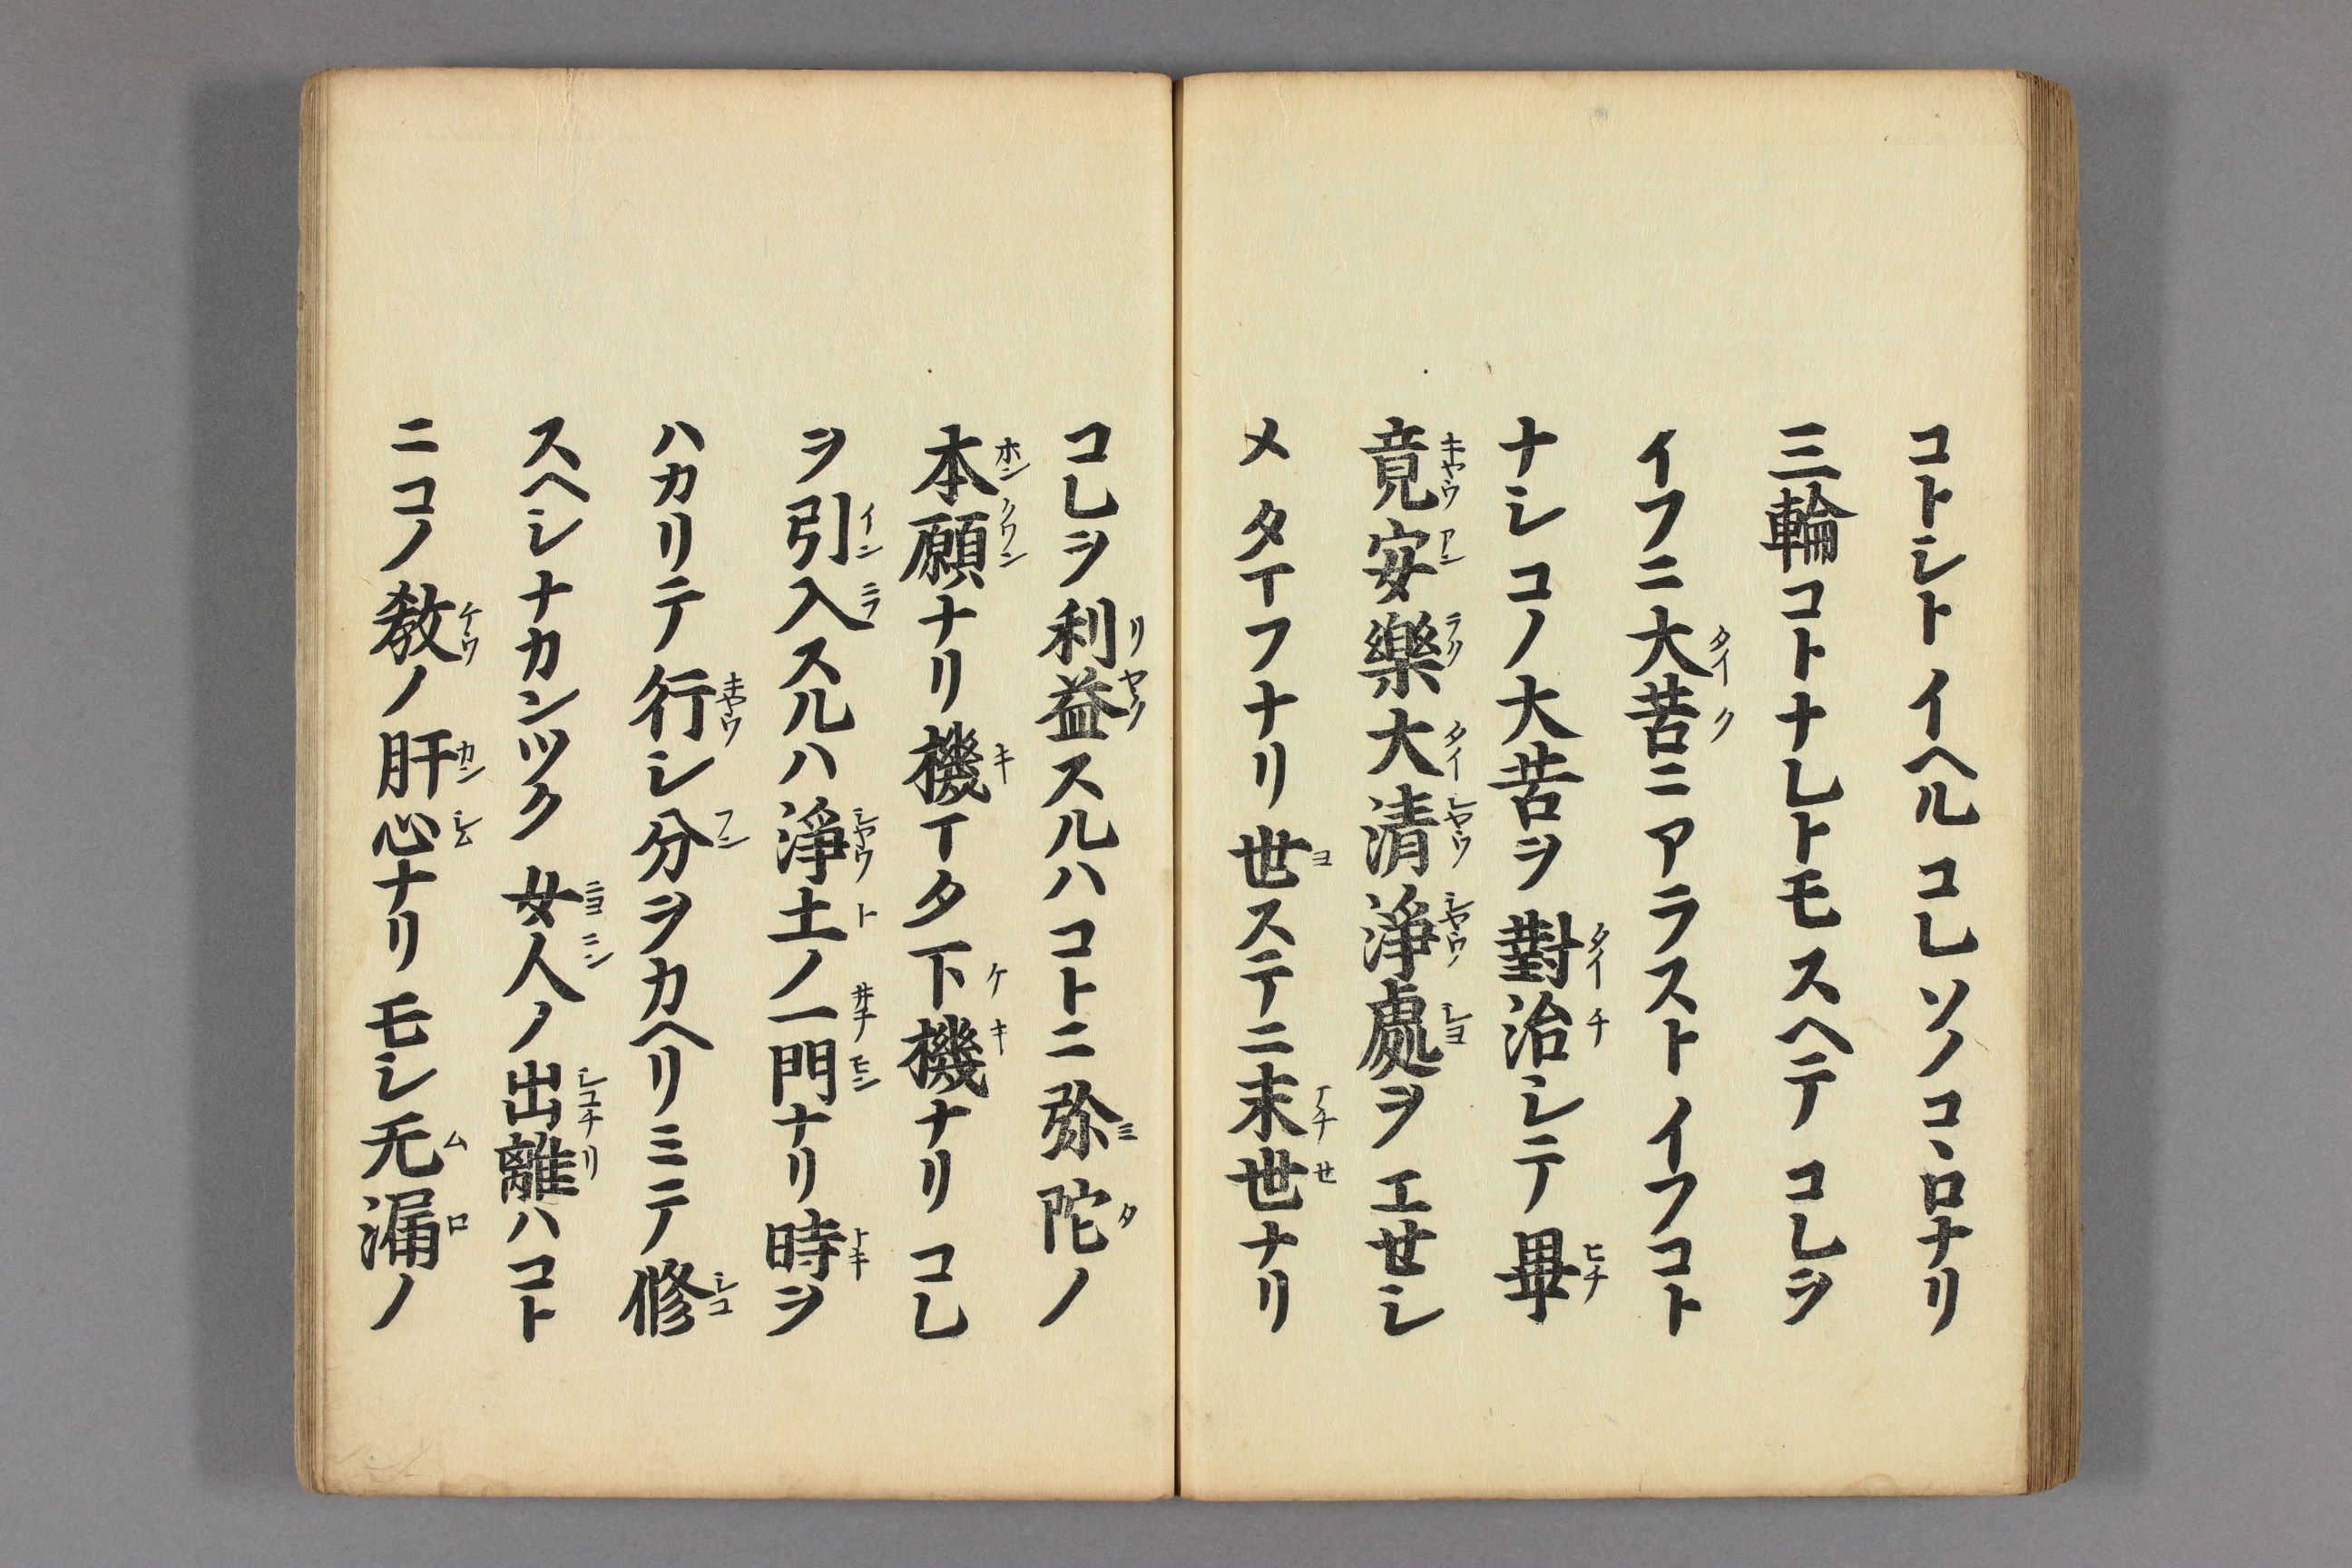 コトシトイヘルコレソノコヽロナリ
三輪コトナレトモスヘテコレヲ
イフニ大苦ニアラストイフコト
ナシコノ大苦ヲ對治シテ畢
竟安樂大清淨處ヲエせシ
メタマフナリ世ステニ末世ナリ
コレヲ利益スルハコトニ弥陀ノ
本願ナリ機マタ下機ナリコレ
ヲ引入スルハ淨土ノ一門ナリ時ヲ
ハカリテ行シ分ヲカヘリミテ修
スヘシナカンツク女人ノ出離ハコト
ニコノ教ノ肝心ナリモシ无漏ノ